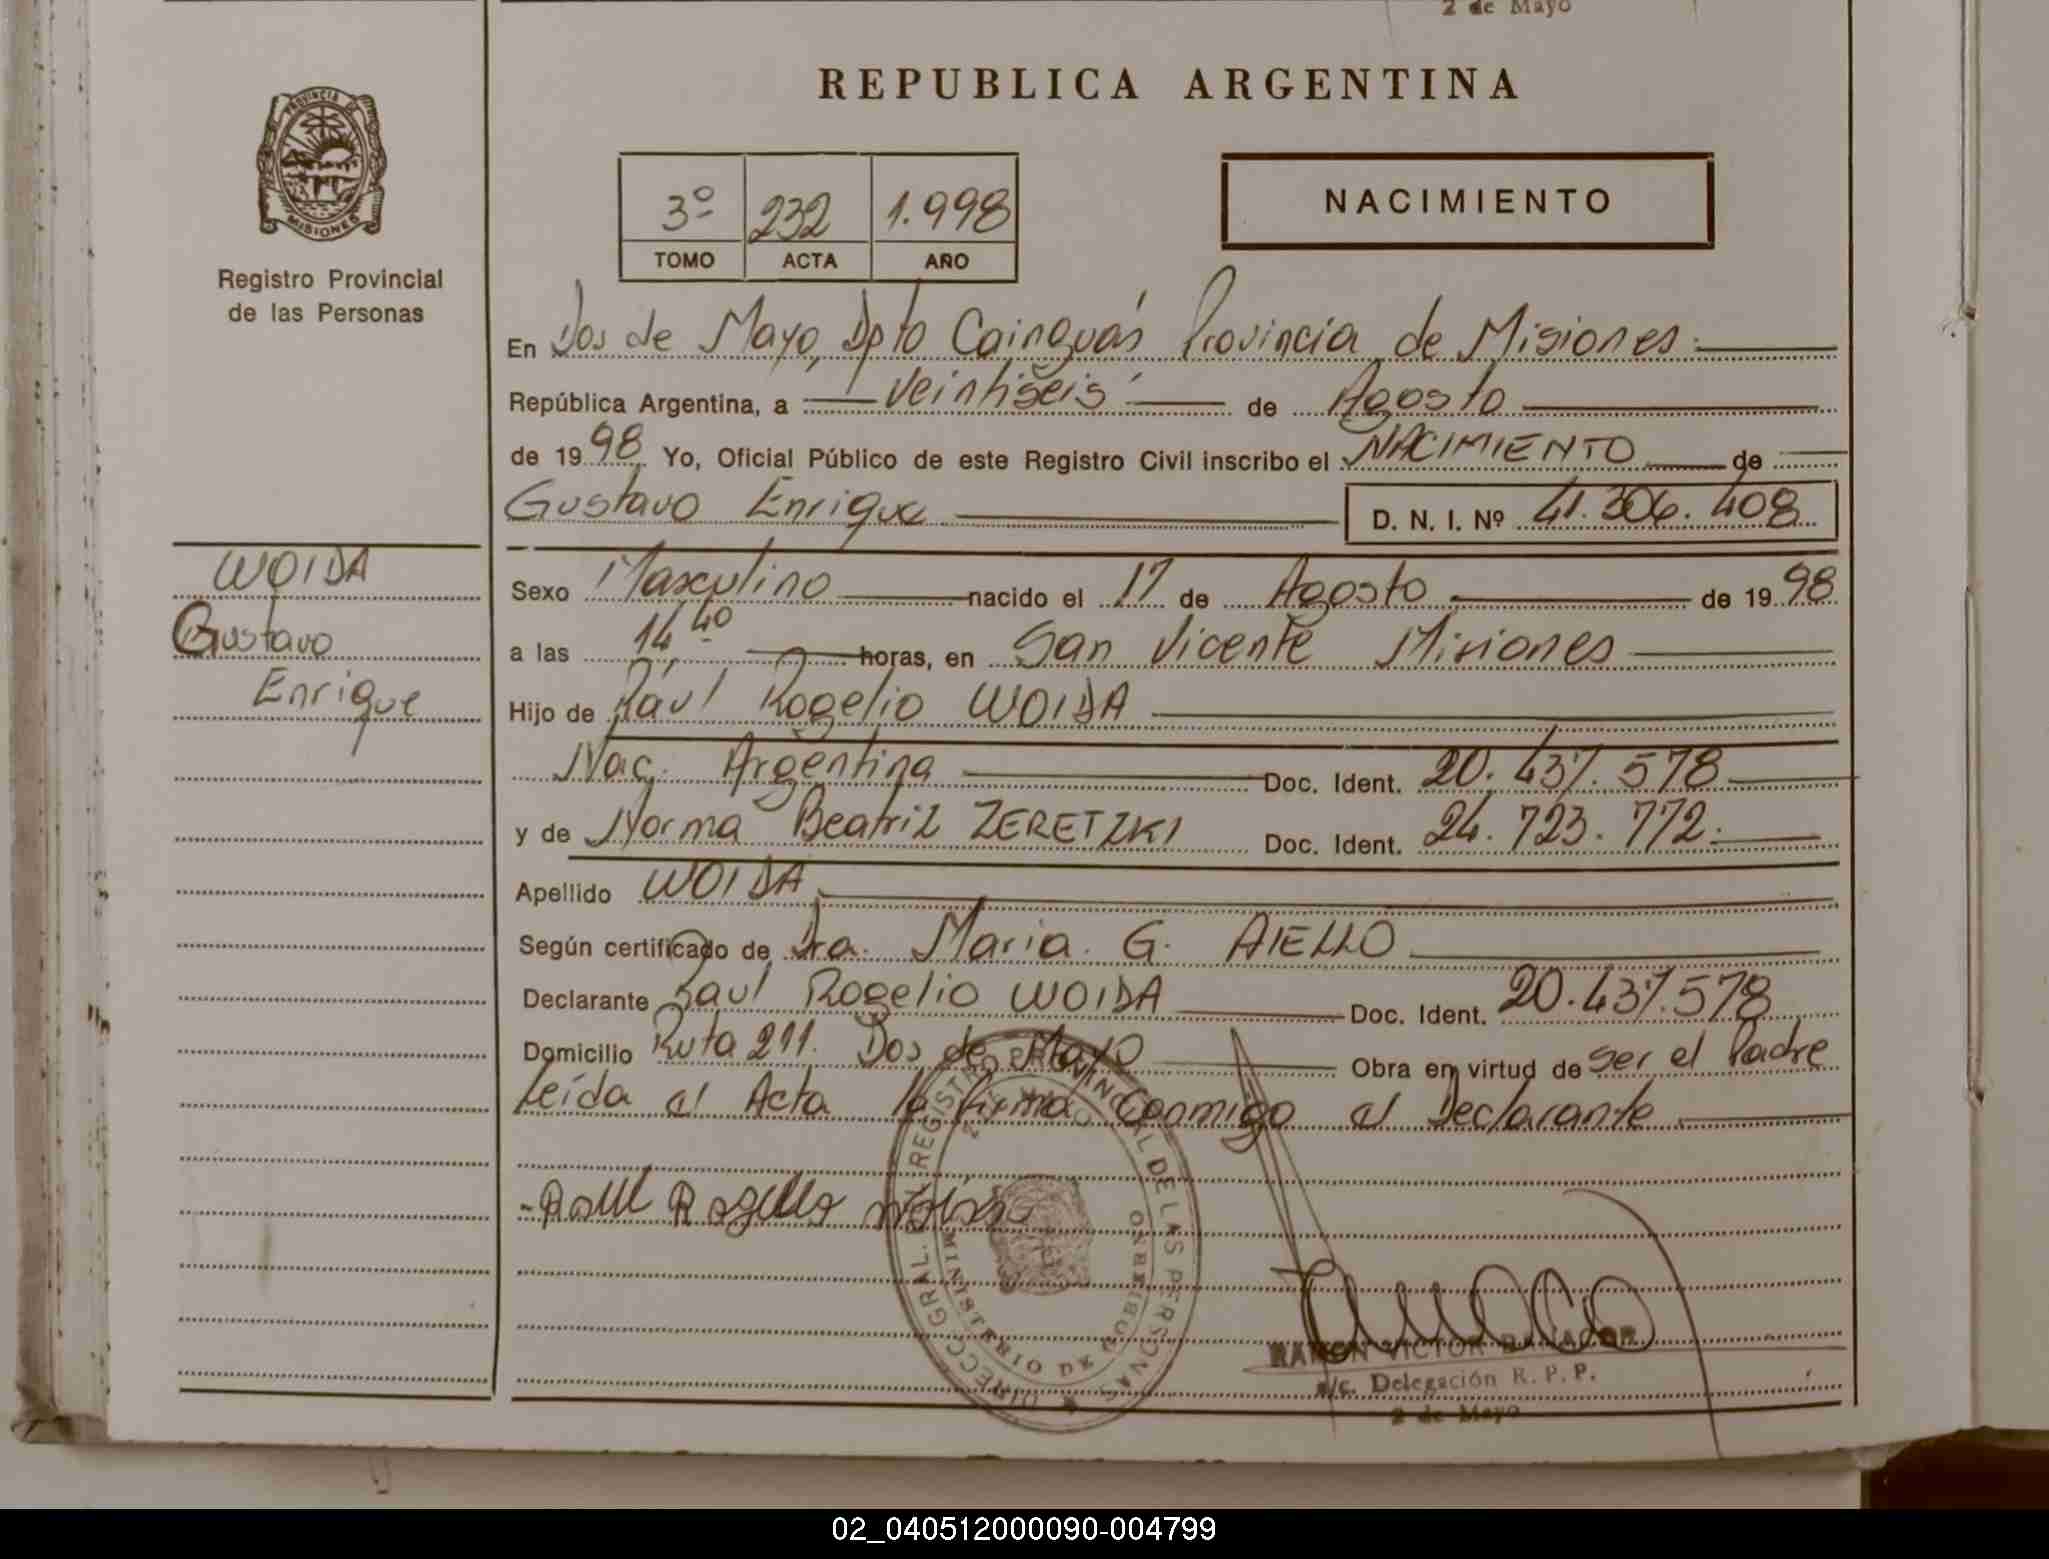 2 de Mayo
REPUBLICA ARGENTINA
PROVINCIA DE
MISIONES
Registro Provincial
de las Personas
3º 232 1.998
TOMO ACTA AÑO
NACIMIENTO
En Dos de Mayo, Dpto Cainguás Provincia de Misiones.
República Argentina, a veintiseis de Agosto
de 1998 Yo, Oficial Público de este Registro Civil inscribo el NACIMIENTO de
Gustavo Enrique D. N. I. Nº 41.306.408
WOIDA
Gustavo
Enrique
Sexo Masculino nacido el 17 de Agosto de 1998
a las 14 40 horas, en San Vicente Misiones
Hijo de Raúl Rogelio WOIDA
Nac. Argentina Doc. Ident. 20.437.578
y de Norma Beatriz ZERETZKI Doc. Ident. 24.723.772.
Apellido WOIDA
Según certificado de Dra. Maria. G. AIELLO
Declarante Raul Rogelio WOIDA Doc. Ident. 20.437.578
Domicilio Ruta 211. Dos de Mayo Obra en virtud de ser el Padre
Leída el Acta la firma Conmigo el Declarante
Raul Rogelio Woida
DIRECC. GRAL. DE REGISTRO PROVINCIAL DE LAS PERSONAS
MINISTERIO DE GOBIERNO
RAMON VICTOR
a/c. Delegación R. P. P.
2 de Mayo
02_040512000090-004799